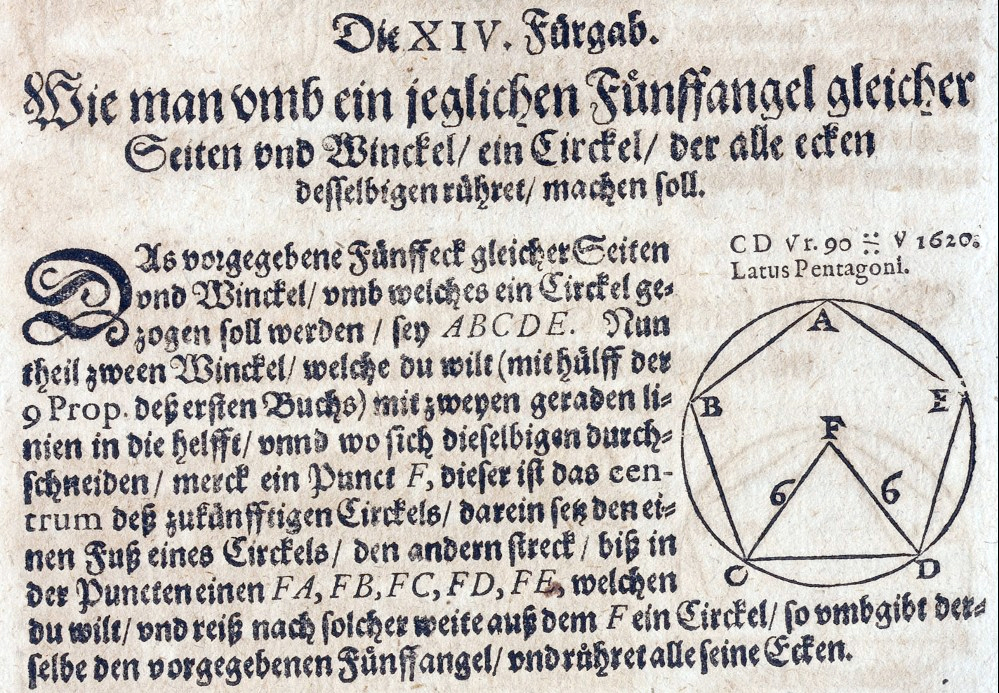 Die XIV. Fürgab.
Wie man vmb ein jeglichen Fünffangel gleicher
Seiten vnd Winckel/ ein Circkel/ der alle ecken
desselbigen rühret/ machen soll.
DAs vorgegebene Fünffeck gleicher Seiten
vnd Winckel/ vmb welches ein Circkel ge⸗
zogen soll werden / sey ABCDE. Nun
theil zween Winckel/ welche du wilt (mit hülff der
9 Prop. deß ersten Buchs) mit zweyen geraden li⸗
nien in die helfft/ vnnd wo sich dieselbigen durch⸗
schneiden/ merck ein Punct F, dieser ist das cen-
trum deß zukünfftigen Circkels/ darein setz den ei⸗
nen Fuß eines Circkels/ den andern streck / biß in
der Puncten einen FA, FB, FC, FD, FE, welchen
du wilt/ vnd reiß nach solcher weite auß dem F ein Circkel/ so vmbgibt der⸗
selbe den vorgegebenen Fünffangel/ vnd rühret alle seine Ecken.
CD Vr. 90 ÷ V 1620.
Latus Pentagoni.
A
B
E
F
6
6
C
D